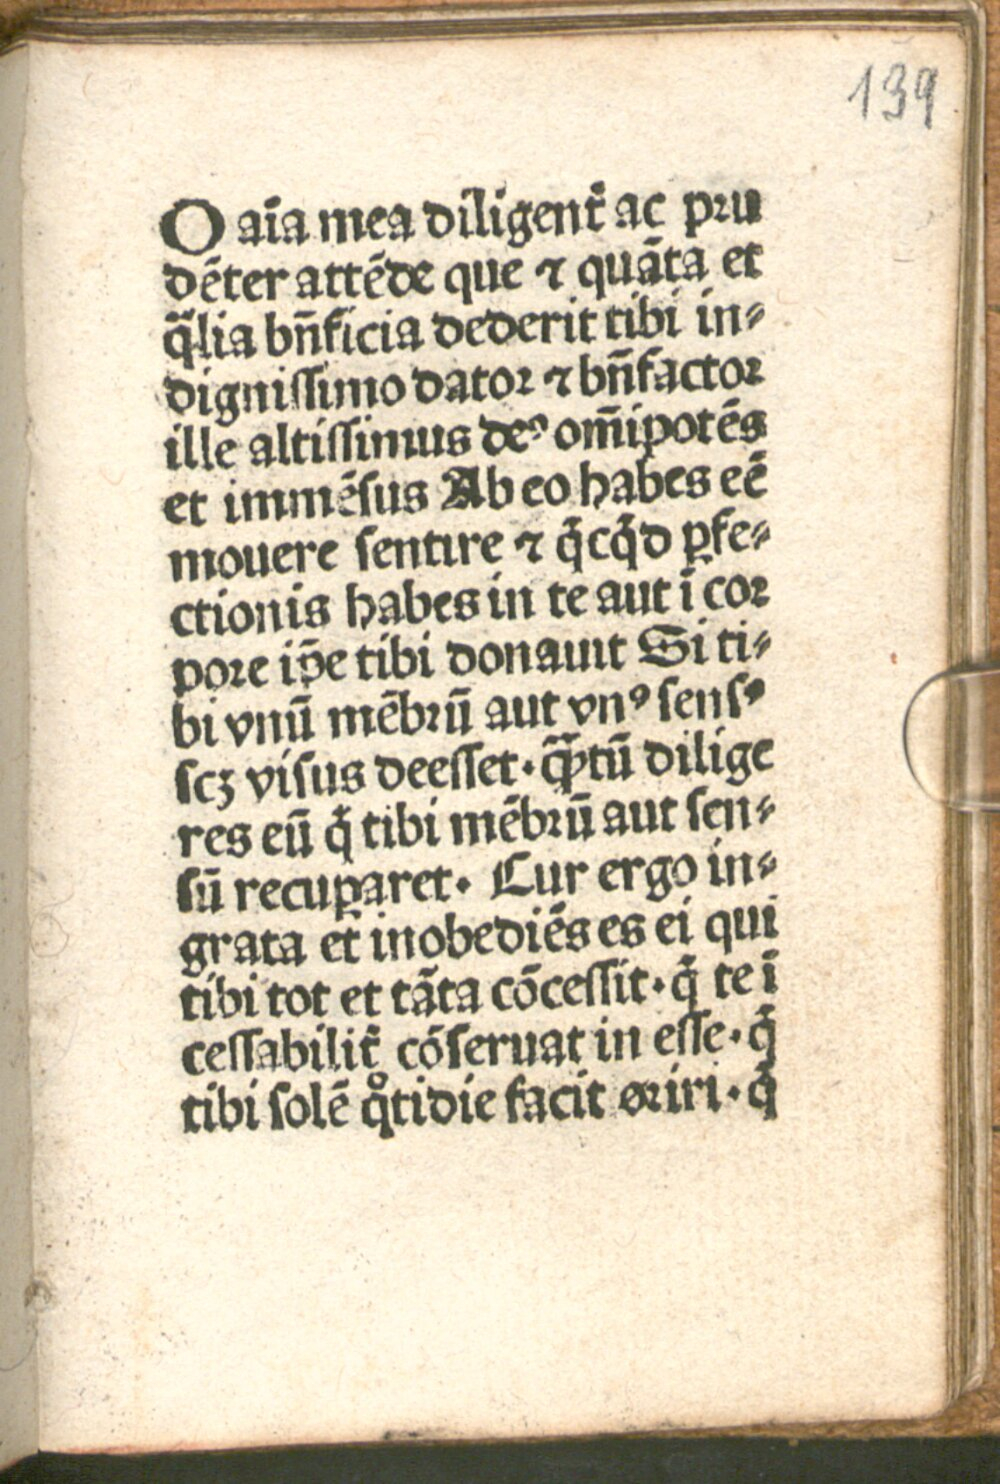 139
O aīa mea diligent̄ ac pru
dēter attēde que ⁊ quāta et
q̄lia bn̄ficia dederit tibi in⸗
digniſſimo dator ⁊ bn̄factor
ille altiſſimus deꝰ om̄ipotēs
et immēſus Ab eo habes eē
mouere ſentire ⁊ q̄cq̄d ꝑfe⸗
ctionis habes in te aut ī cor
pore ip̄e tibi donauit Si ti⸗
bi vnū mēbrū aut vnꝰ ſenſꝰ
ſcꝫ viſus deeſſet· qͣꝫtū dilige
res eū q̄ tibi mēbrū aut ſen⸗
ſū recuꝑaret· Cur ergo in⸗
grata et inobediēs es ei qui
tibi tot et tāta cōceſſit· q̄ te ī
ceſſabilit̄ cōſeruat in eſſe· q̄
tibi ſolē qͦtidie facit oriri· q̄